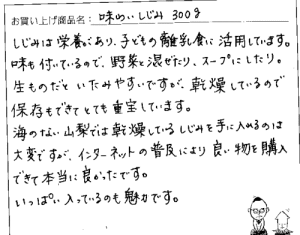 お買い上げ商品名: 味わいしじみ 300g
しじみは栄養があり、子どもの離乳食に活用しています。
味も付いているので、野菜と混ぜたり、スープにしたり。
生ものだといたみやすいですが、乾燥しているので
保存もできてとても重宝しています。
海のない山梨では乾燥しているしじみを手に入れるのは
大変ですが、インターネットの普及により良い物を購入
できて本当に良かったです。
いっぱい入っているのも魅力です。